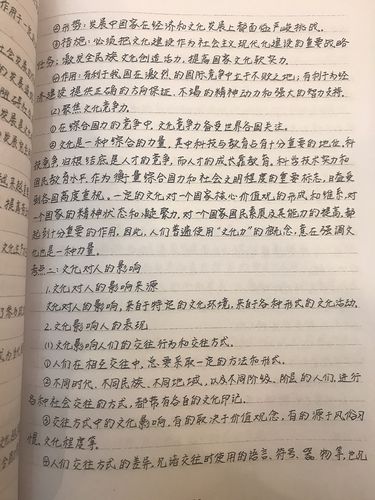 ②形势：发展中国家在经济和文化发展上都面临严峻挑战。
③措施：必须把文化建设作为社会主义现代化建设的重要战略
任务，激发全民族文化创造活力，提高国家文化软实力。
④作用：有利于我国在激烈的国际竞争中立于不败之地；有利于为经
济建设提供正确的方向保证、不竭的精神动力和强大的智力支持。
(2)聚焦文化竞争力。
①在综合国力的竞争中，文化竞争力备受世界各国关注。
②文化是一种综合的力量，其中科技与教育占有十分重要的地位，科
技竞争归根结底是人才的竞争，而人才的成长靠教育。科学技术实力和
国民教育水平，作为衡量综合国力和社会文明程度的重要标志，日益受
到各国高度重视。一定的文化，对一个国家核心价值观的形成和维系，对
一个国家的精神状态和凝聚力，对一个国家国民素质及其能力的提高，都
起到十分重要的作用。因此，人们普遍使用“文化力”的概念，旨在强调文
化也是一种力量。
考点二：文化对人的影响
1.文化对人的影响来源
文化对人的影响，来自于特定的文化环境，来自于各种形式的文化活动。
2.文化影响人的表现
(1)文化影响人们的交往行为和交往方式。
①人们在相互交往中，总要采取一定的方法和形式。
②不同时代、不同民族、不同地域，以及不同阶级、阶层的人们，进行
各种社会交往的方式，都带有各自的文化印记。
③交往方式中的文化影响，有的取决于价值观念，有的源于风俗习
惯、文化程度等。
④人们交往方式的差异，尤语交往时使用的语言、符号、器物等，也几